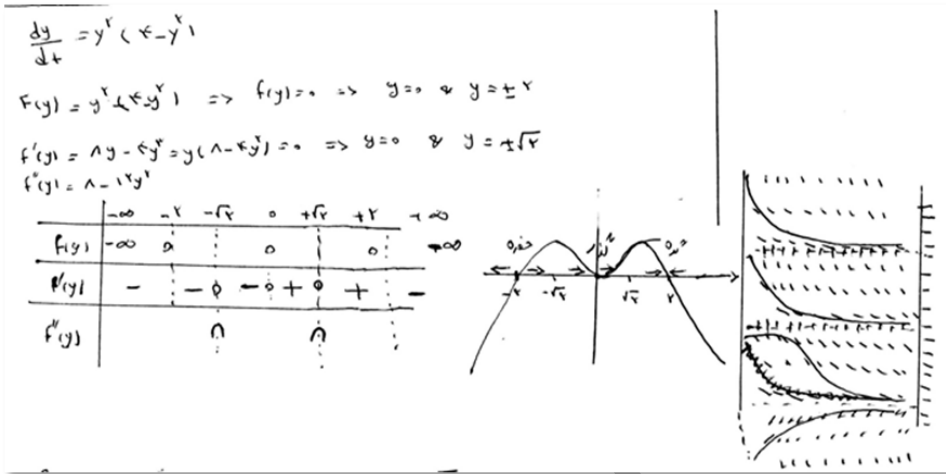 dy/dt = y^۲ (۴ - y^۲)
F(y) = y^۲ (۴ - y^۲) => f(y) = ۰ => y = ۰ & y = ±۲
f'(y) = ۸y - ۴y^۳ = y(۸ - ۴y^۲) = ۰ => y = ۰ & y = ±√۲
f''(y) = ۸ - ۱۲y^۲
-∞ -۲ -√۲ ۰ +√۲ +۲ +∞
f(y) -∞ ۰ ۰ ۰ -∞
f'(y) - - ۰ - ۰ + ۰ + -
f''(y) ∩ ∩
-۲ -√۲ √۲ ۲